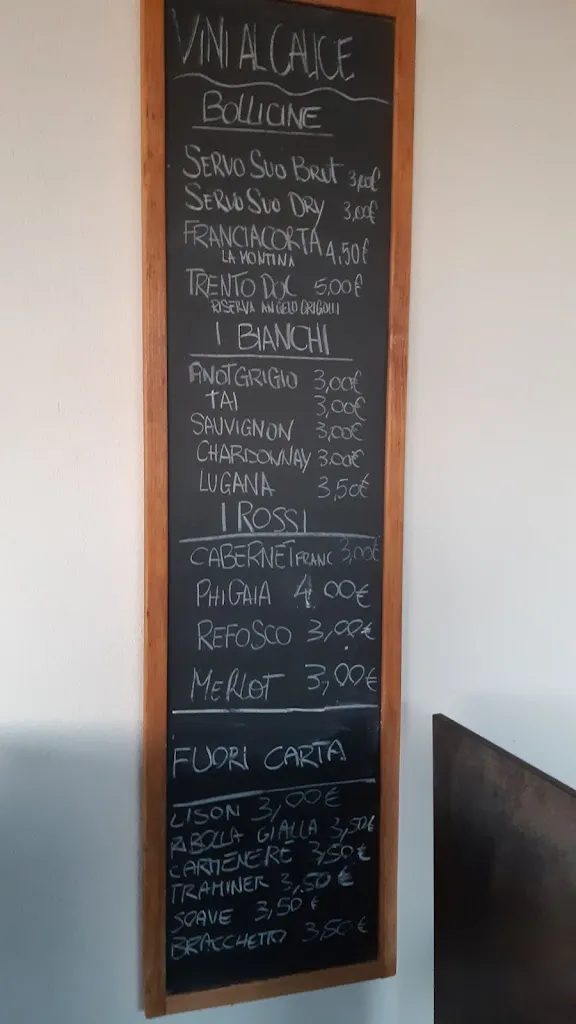 VINI AL CALICE
BOLLICINE
SERVO SUO BRUT 3,00€
SERVO SUO DRY 3,00€
FRANCIACORTA 4,50€
LA MONTINA
TRENTO DOC 5,00€
RISERVA ANGELO GRIGOLLI
I BIANCHI
PINOT GRIGIO 3,00€
TAI 3,00€
SAUVIGNON 3,00€
CHARDONNAY 3,00€
LUGANA 3,50€
I ROSSI
CABERNET FRANC 3,00€
PHIGAIA 4,00€
REFOSCO 3,00€
MERLOT 3,00€
FUORI CARTA
LISON 3,00€
RIBOLLA GIALLA 3,50€
CARMENERE 3,50€
TRAMINER 3,50€
SOAVE 3,50€
BRACCHETTO 3,50€